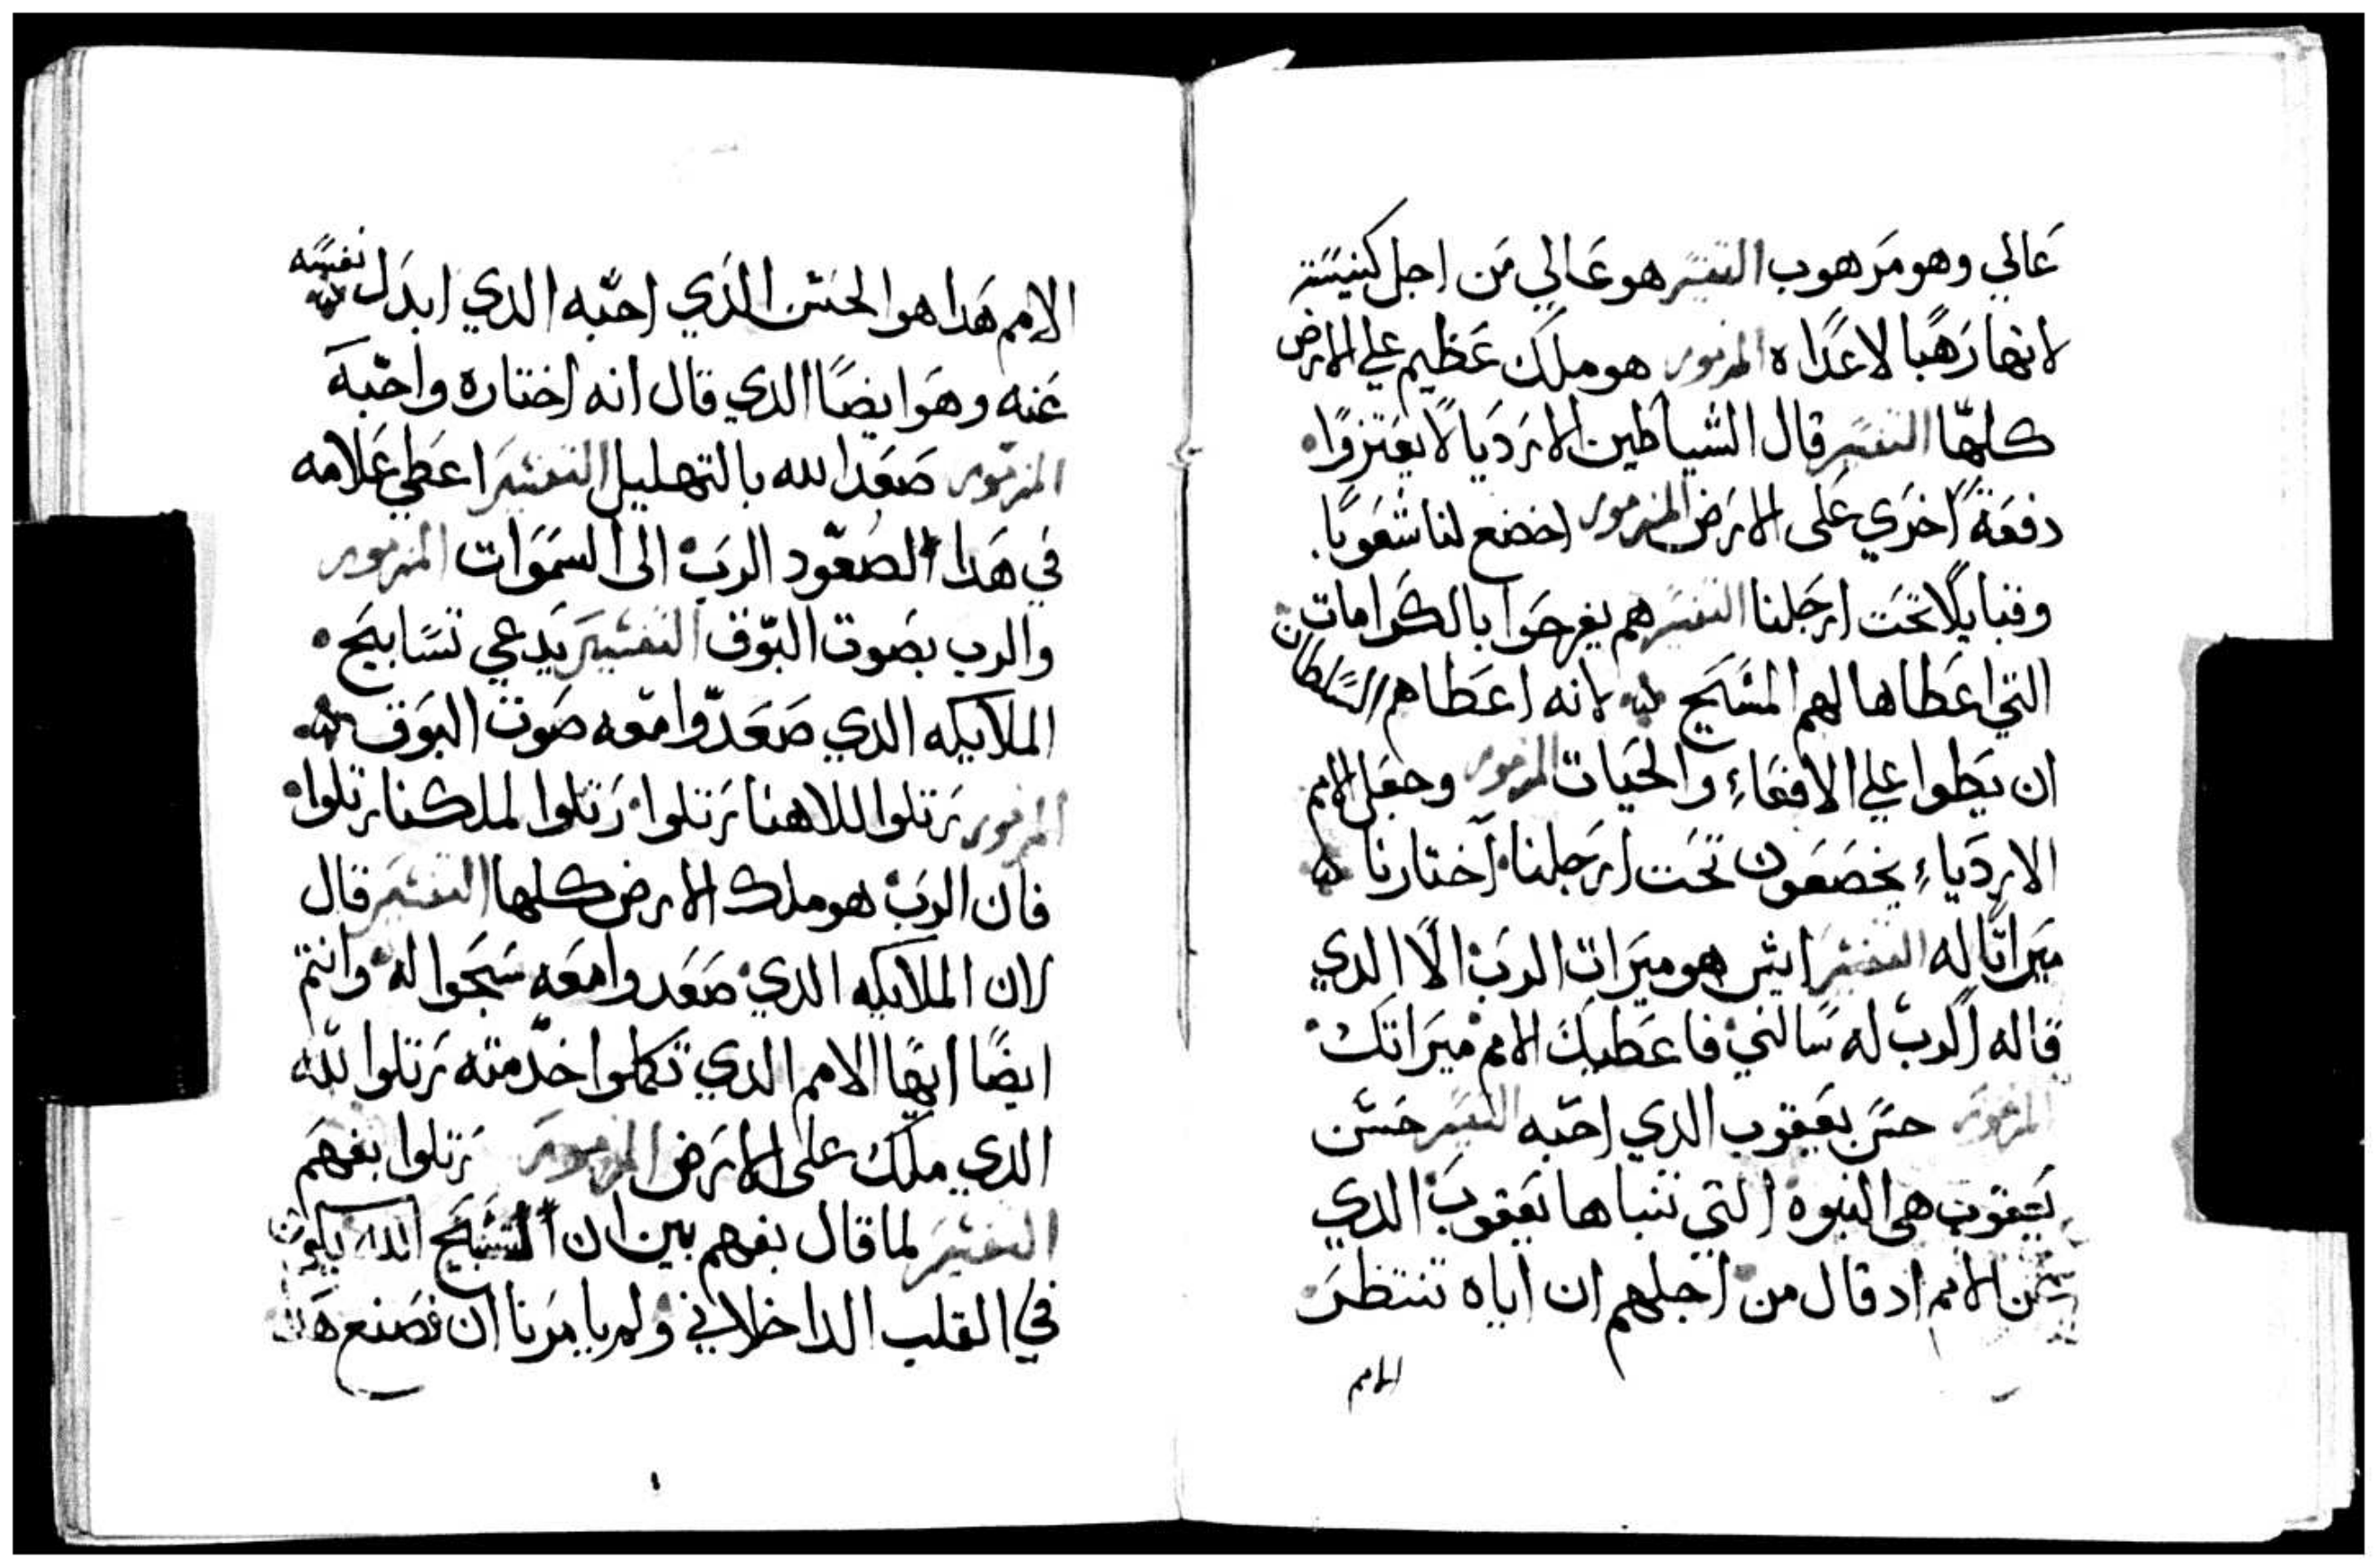 عَالي وهو مَرهوب التفسَر هو عَالي مَن اجل كنيسَته
لانها رَهبًا لاعَداه المزمور هو ملك عَظيم علي الارض
كلهّا التفسَر قال الشياطين الارَديا لا يفتزوًا
دفعَة اخرَي عَلى الارَض المزمور اخضع لنا شعَوبًا
وقبايلًا تحَت ارجَلنا التفسَر هم يفرحَوا بالكرَامات
التي اعَطاها لهم المسَيَح لانه اعَطاهم السَلطان
ان يَطوا علي الافعَاءِ والحَيات المزمور وجعَل الامم
الارديَاءِ يخضَعَون تحَت ارَجلنا اختارنا
ميَراثًا له التفسَير ايش هو ميَراث الربَ الا الدي
قاله الربّ له سَالني فاعَطيكَ الامم ميَراثك
المزمور حسَن يعَقوب الدي احبّه التفسَير حسَن
يَعقوب هى النبوه التي تنباها يَعقوبَ الدي
عَن الامم اد قال من اجلهم ان اياه تنتظرَ
الامم
الامم هَدا هو الحسَن الدَي احبّه الدي ابدَل نفسَه
عَنه وهَو ايضًا الدي قال انه اختاره واحّبهَ
المزمّور صَعَد الله بالتهليل التفسَير اعَطي عَلامه
في هَدا الصعّود الربَ الى السمَوَات المزمور
والرب بصَوت البّوق التفسَير يَدعي تسَابيَح
الملايكه الدي صَعَدّوا معَه صَوت البَوق
المزمور رَتلوا للاهنا رَتلوا رَتلوا لملكنا رتلوا
فان الربَ هو ملك الارض كلها التفسَير قال
لان الملايكه الدي صَعَدوا معَه سَبحَوا له وانتم
ايضًا ايهًا الامم الدي تكملوا خدّمته رَتلوا للّه
الدي ملك على الارَض المزمور رَتلوا بفهَم
التفسَير لما قال بفهم بين ان التسَبيَح لله يكون
في القلب الداخلاني ولم يامرَنا ان نصَنع هَدا